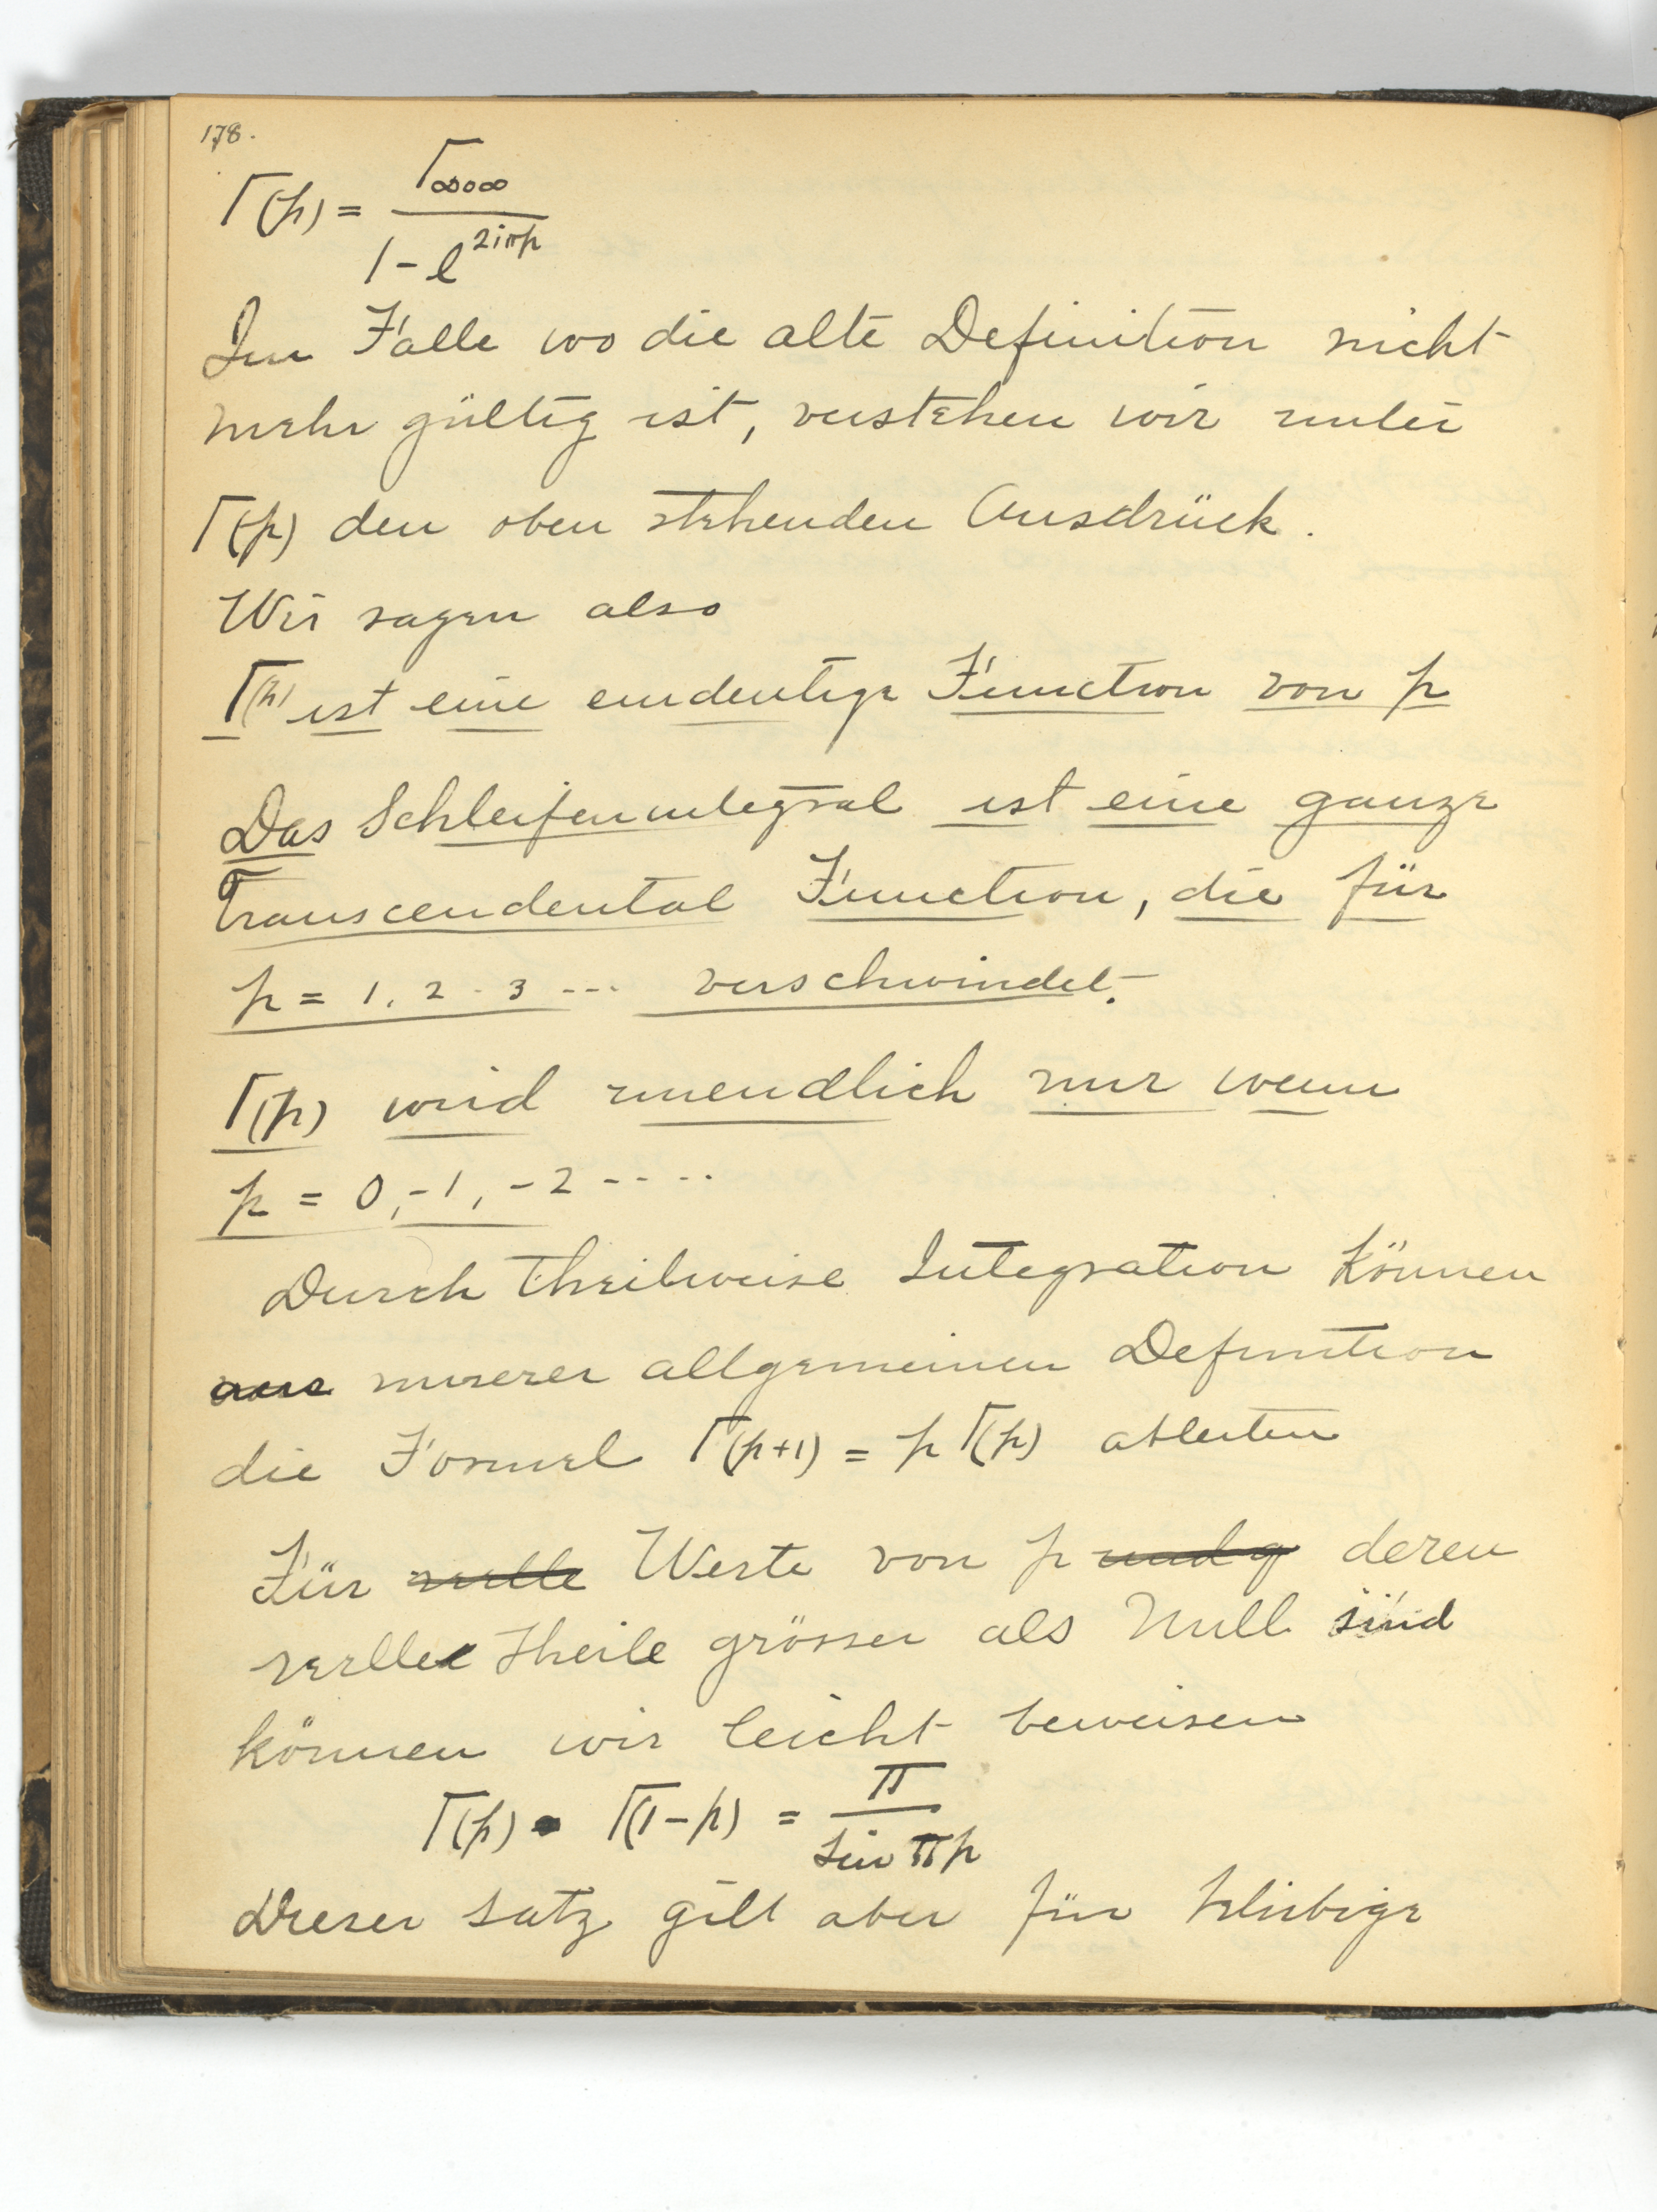 178.
Γ(p) = Γ∞0∞ / 1 - e^{2iπp}
Im Falle wo die alte Definition nicht
mehr gültig ist, verstehen wir unter
Γ(p) den oben stehenden Ausdrück.
Wir sagen also
Γ(p) ist eine eindeutige Function von p
Das Schleifenintegral ist eine ganze
Transcendental Function, die für
p = 1, 2 . 3 ... verschwindet.
Γ(p) wird unendlich nur wenn
p = 0, -1, -2 ....
Durch theilweise Integration können
aus unserer allgemeinen Definition
die Formel Γ(p+1) = p Γ(p) ableiten
Für reelle Werte von p und q deren
reelle Theile grösser als Null sind
können wir leicht beweisen
Γ(p) · Γ(1-p) = π / sin πp
Dieser Satz gilt aber für beliebige